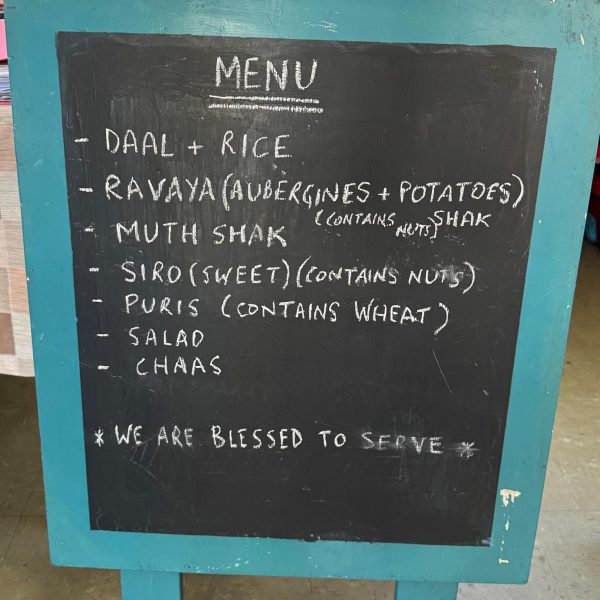 MENU
- DAAL + RICE
- RAVAYA (AUBERGINES + POTATOES)
(CONTAINS NUTS) SHAK
- MUTH SHAK
- SIRO (SWEET) (CONTAINS NUTS)
- PURIS (CONTAINS WHEAT)
- SALAD
- CHAAS
* WE ARE BLESSED TO SERVE *